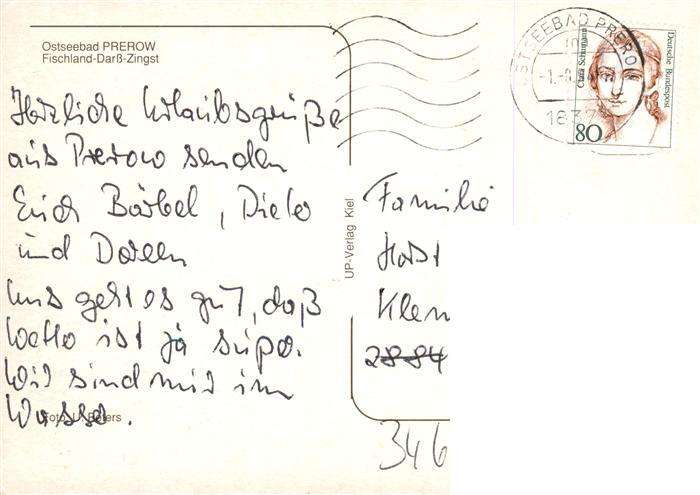 Ostseebad PREROW
Fischland-Darß-Zingst
Herzliche Urlaubsgrüße
aus Prerow senden
Euch Bärbel, Dieter
und Doreen
Uns geht es gut, daß
Wetter ist ja super.
Wir sind nur im
Wasser.
Foto: U. Peters
UP-Verlag Kiel
OSTSEEBAD PREROW
1837
Clara Schumann
Deutsche Bundespost
80
Familie
Horst
Klem
2884
346